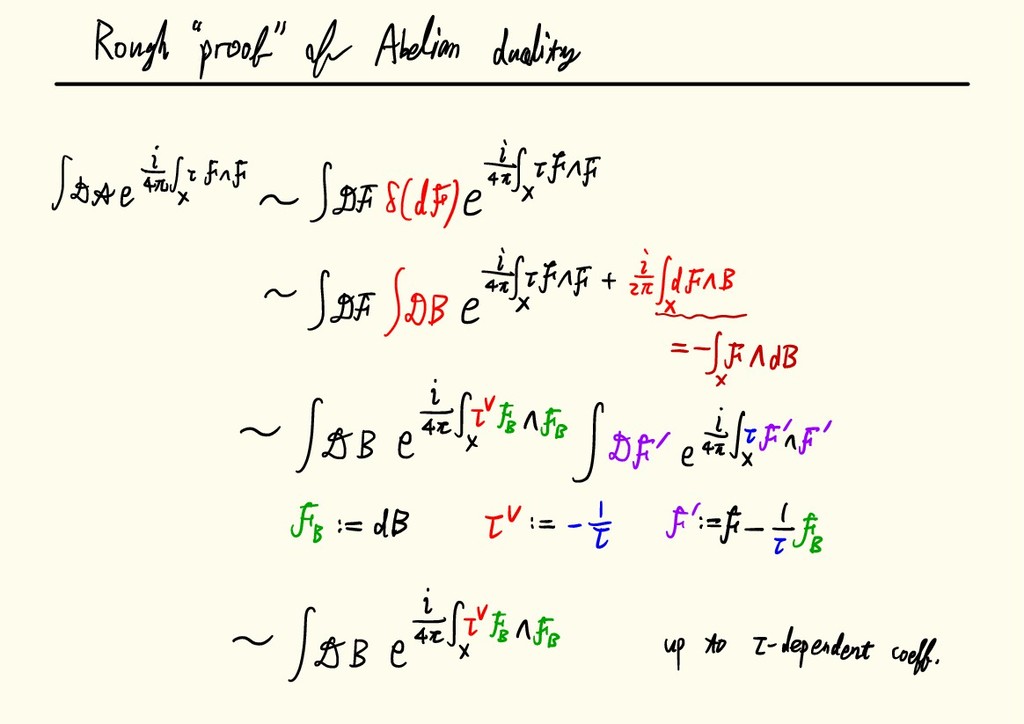 Rough "proof" of Abelian duality
∫𝒟A e^{i/4π ∫_X τ F∧F} ~ ∫𝒟F δ(dF) e^{i/4π ∫_X τ F∧F}
~ ∫𝒟F ∫𝒟B e^{i/4π ∫_X τ F∧F + i/2π ∫_X dF∧B}
= -∫_X F∧dB
~ ∫𝒟B e^{i/4π ∫_X τ^∨ F_B∧F_B} ∫𝒟F′ e^{i/4π ∫_X τ F′∧F′}
F_B := dB τ^∨ := -1/τ F′ := F - 1/τ F_B
~ ∫𝒟B e^{i/4π ∫_X τ^∨ F_B∧F_B} up to τ-dependent coeff.